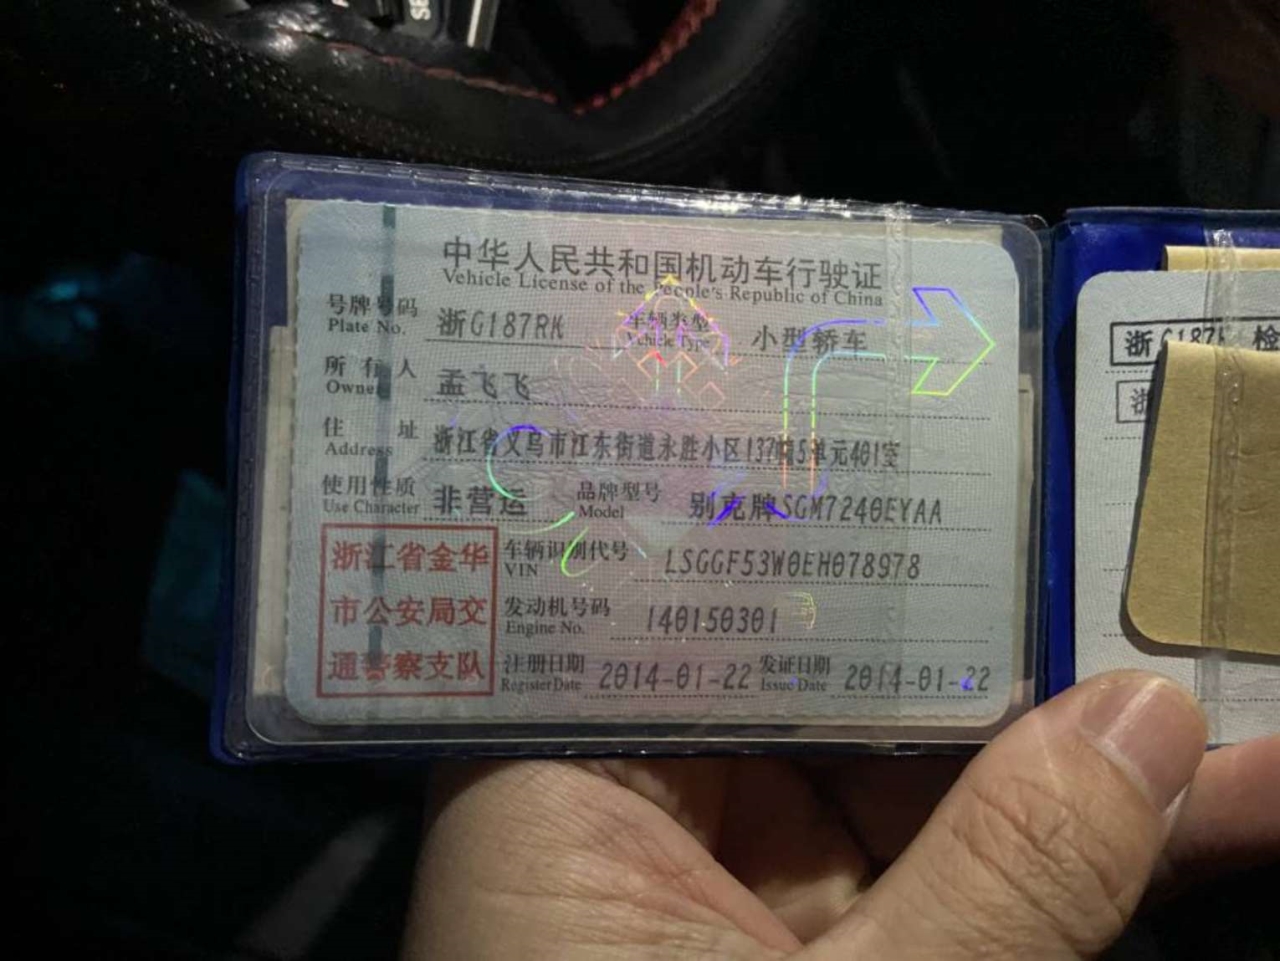 SE
中华人民共和国机动车行驶证
Vehicle License of the People's Republic of China
号牌号码 浙G187RK 车辆类型 小型轿车
Plate No. Vehicle Type
所有人 孟飞飞
Owner
住址 浙江省义乌市江东街道永胜小区137幢5单元401室
Address
使用性质 非营运 品牌型号 别克牌SGM7240EYAA
Use Character Model
浙江省金华
市公安局交
通警察支队
车辆识别代号 LSGGF53W0EH078978
VIN
发动机号码 140150301
Engine No.
注册日期 2014-01-22 发证日期 2014-01-22
Register Date Issue Date
浙G187 检
浙